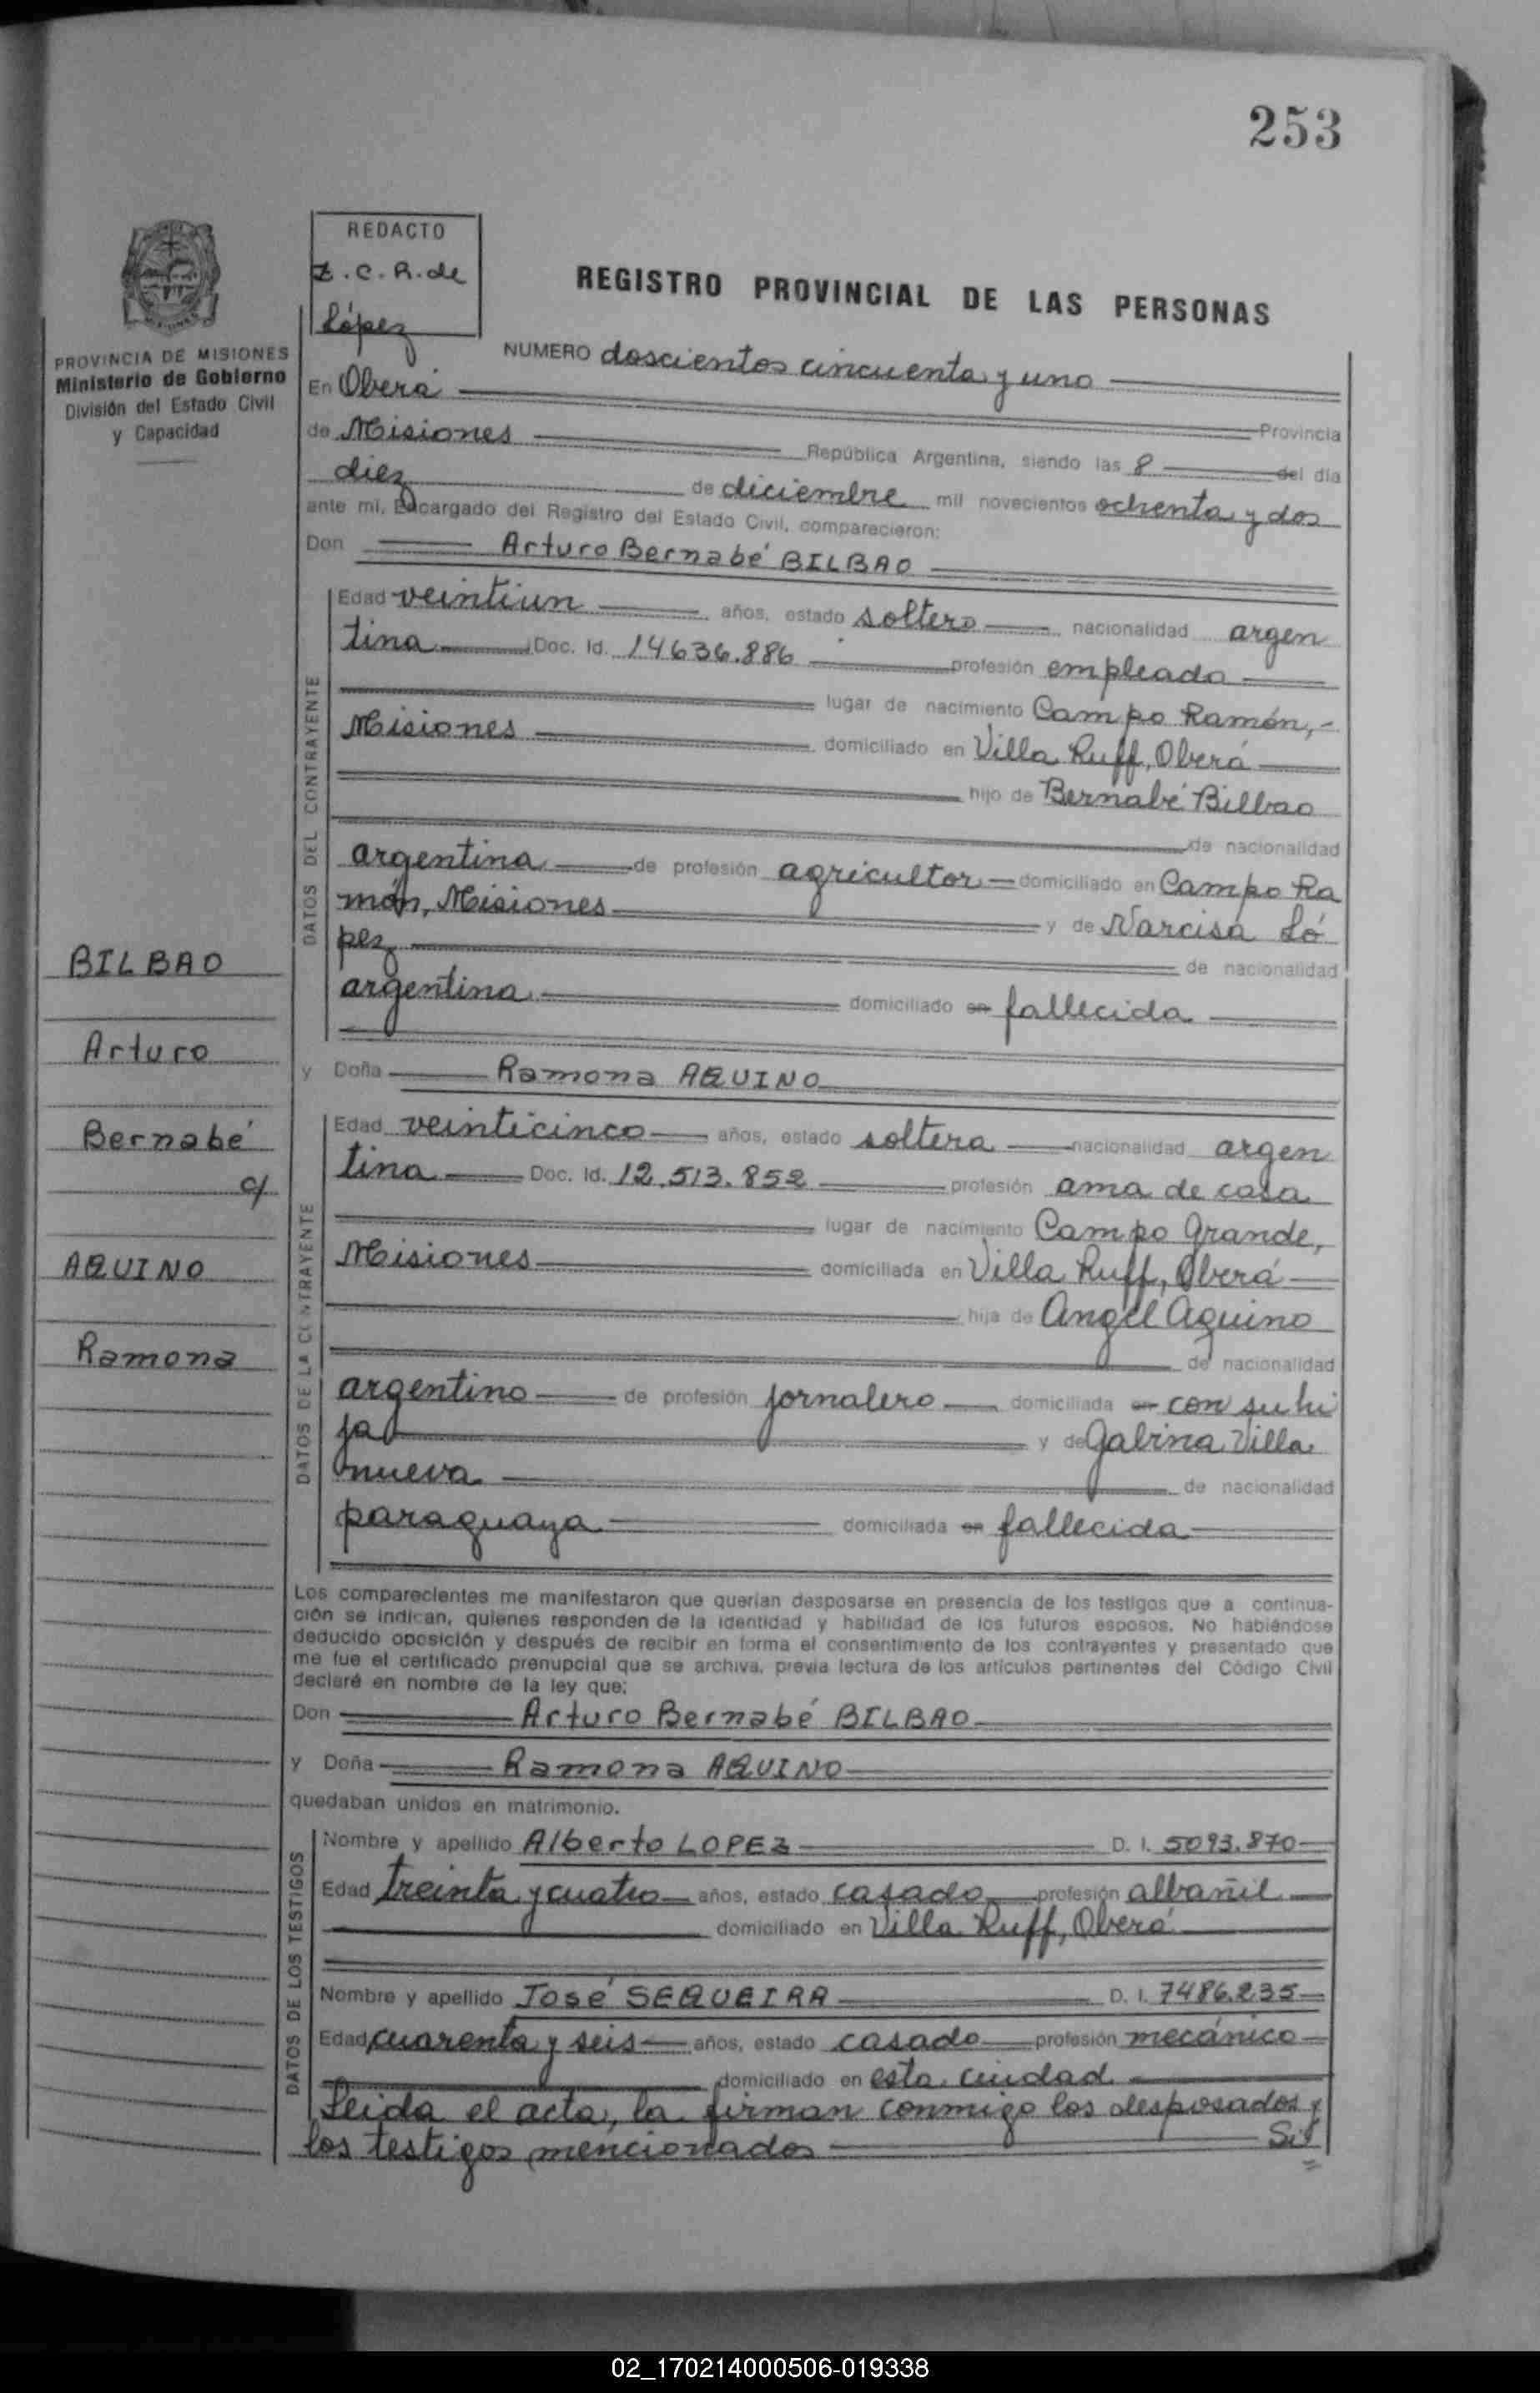 253
REDACTO
Z.C.R. de
López
REGISTRO PROVINCIAL DE LAS PERSONAS
PROVINCIA DE MISIONES
Ministerio de Gobierno
División del Estado Civil
y Capacidad
NUMERO doscientos cincuenta y uno
En Oberá
Provincia
de Misiones República Argentina, siendo las 8 del día
diez de diciembre mil novecientos ochenta y dos
ante mi, Encargado del Registro del Estado Civil, comparecieron:
Don Arturo Bernabé BILBAO
DATOS DEL CONTRAYENTE
Edad veintiun años, estado soltero nacionalidad argen
tina Doc. Id. 14636.886 profesión empleado
lugar de nacimiento Campo Ramón,-
Misiones domiciliado en Villa Ruff, Oberá
hijo de Bernabé Bilbao
de nacionalidad
argentina de profesión agricultor domiciliado en Campo Ra
món, Misiones y de Narcisa Ló
pez de nacionalidad
argentina domiciliado en fallecida
y Doña Ramona AQUINO
DATOS DE LA CONTRAYENTE
Edad veinticinco años, estado soltera nacionalidad argen
tina Doc. Id. 12.513.852 profesión ama de casa
lugar de nacimiento Campo Grande,
Misiones domiciliada en Villa Ruff, Oberá
hija de Angel Aquino
de nacionalidad
argentino de profesión jornalero domiciliada en con su hi
ja y de Gabina Villa
nueva de nacionalidad
paraguaya domiciliada en fallecida
BILBAO
Arturo
Bernabé
c/
AQUINO
Ramona
Los comparecientes me manifestaron que querían desposarse en presencia de los testigos que a continua-
ción se indican, quienes responden de la identidad y habilidad de los futuros esposos. No habiéndose
deducido oposición y después de recibir en forma el consentimiento de los contrayentes y presentado que
me fue el certificado prenupcial que se archiva, previa lectura de los artículos pertinentes del Código Civil
declaré en nombre de la ley que:
Don Arturo Bernabé BILBAO
y Doña Ramona AQUINO
quedaban unidos en matrimonio.
DATOS DE LOS TESTIGOS
Nombre y apellido Alberto LOPEZ D. I. 5093.870
Edad treinta y cuatro años, estado casado profesión albañil
domiciliado en Villa Ruff, Oberá
Nombre y apellido José SEQUEIRA D. I. 7486.235
Edad cuarenta y seis años, estado casado profesión mecánico
domiciliado en esta ciudad
Leida el acta, la firman conmigo los desposados y
los testigos mencionados
02_170214000506-019338